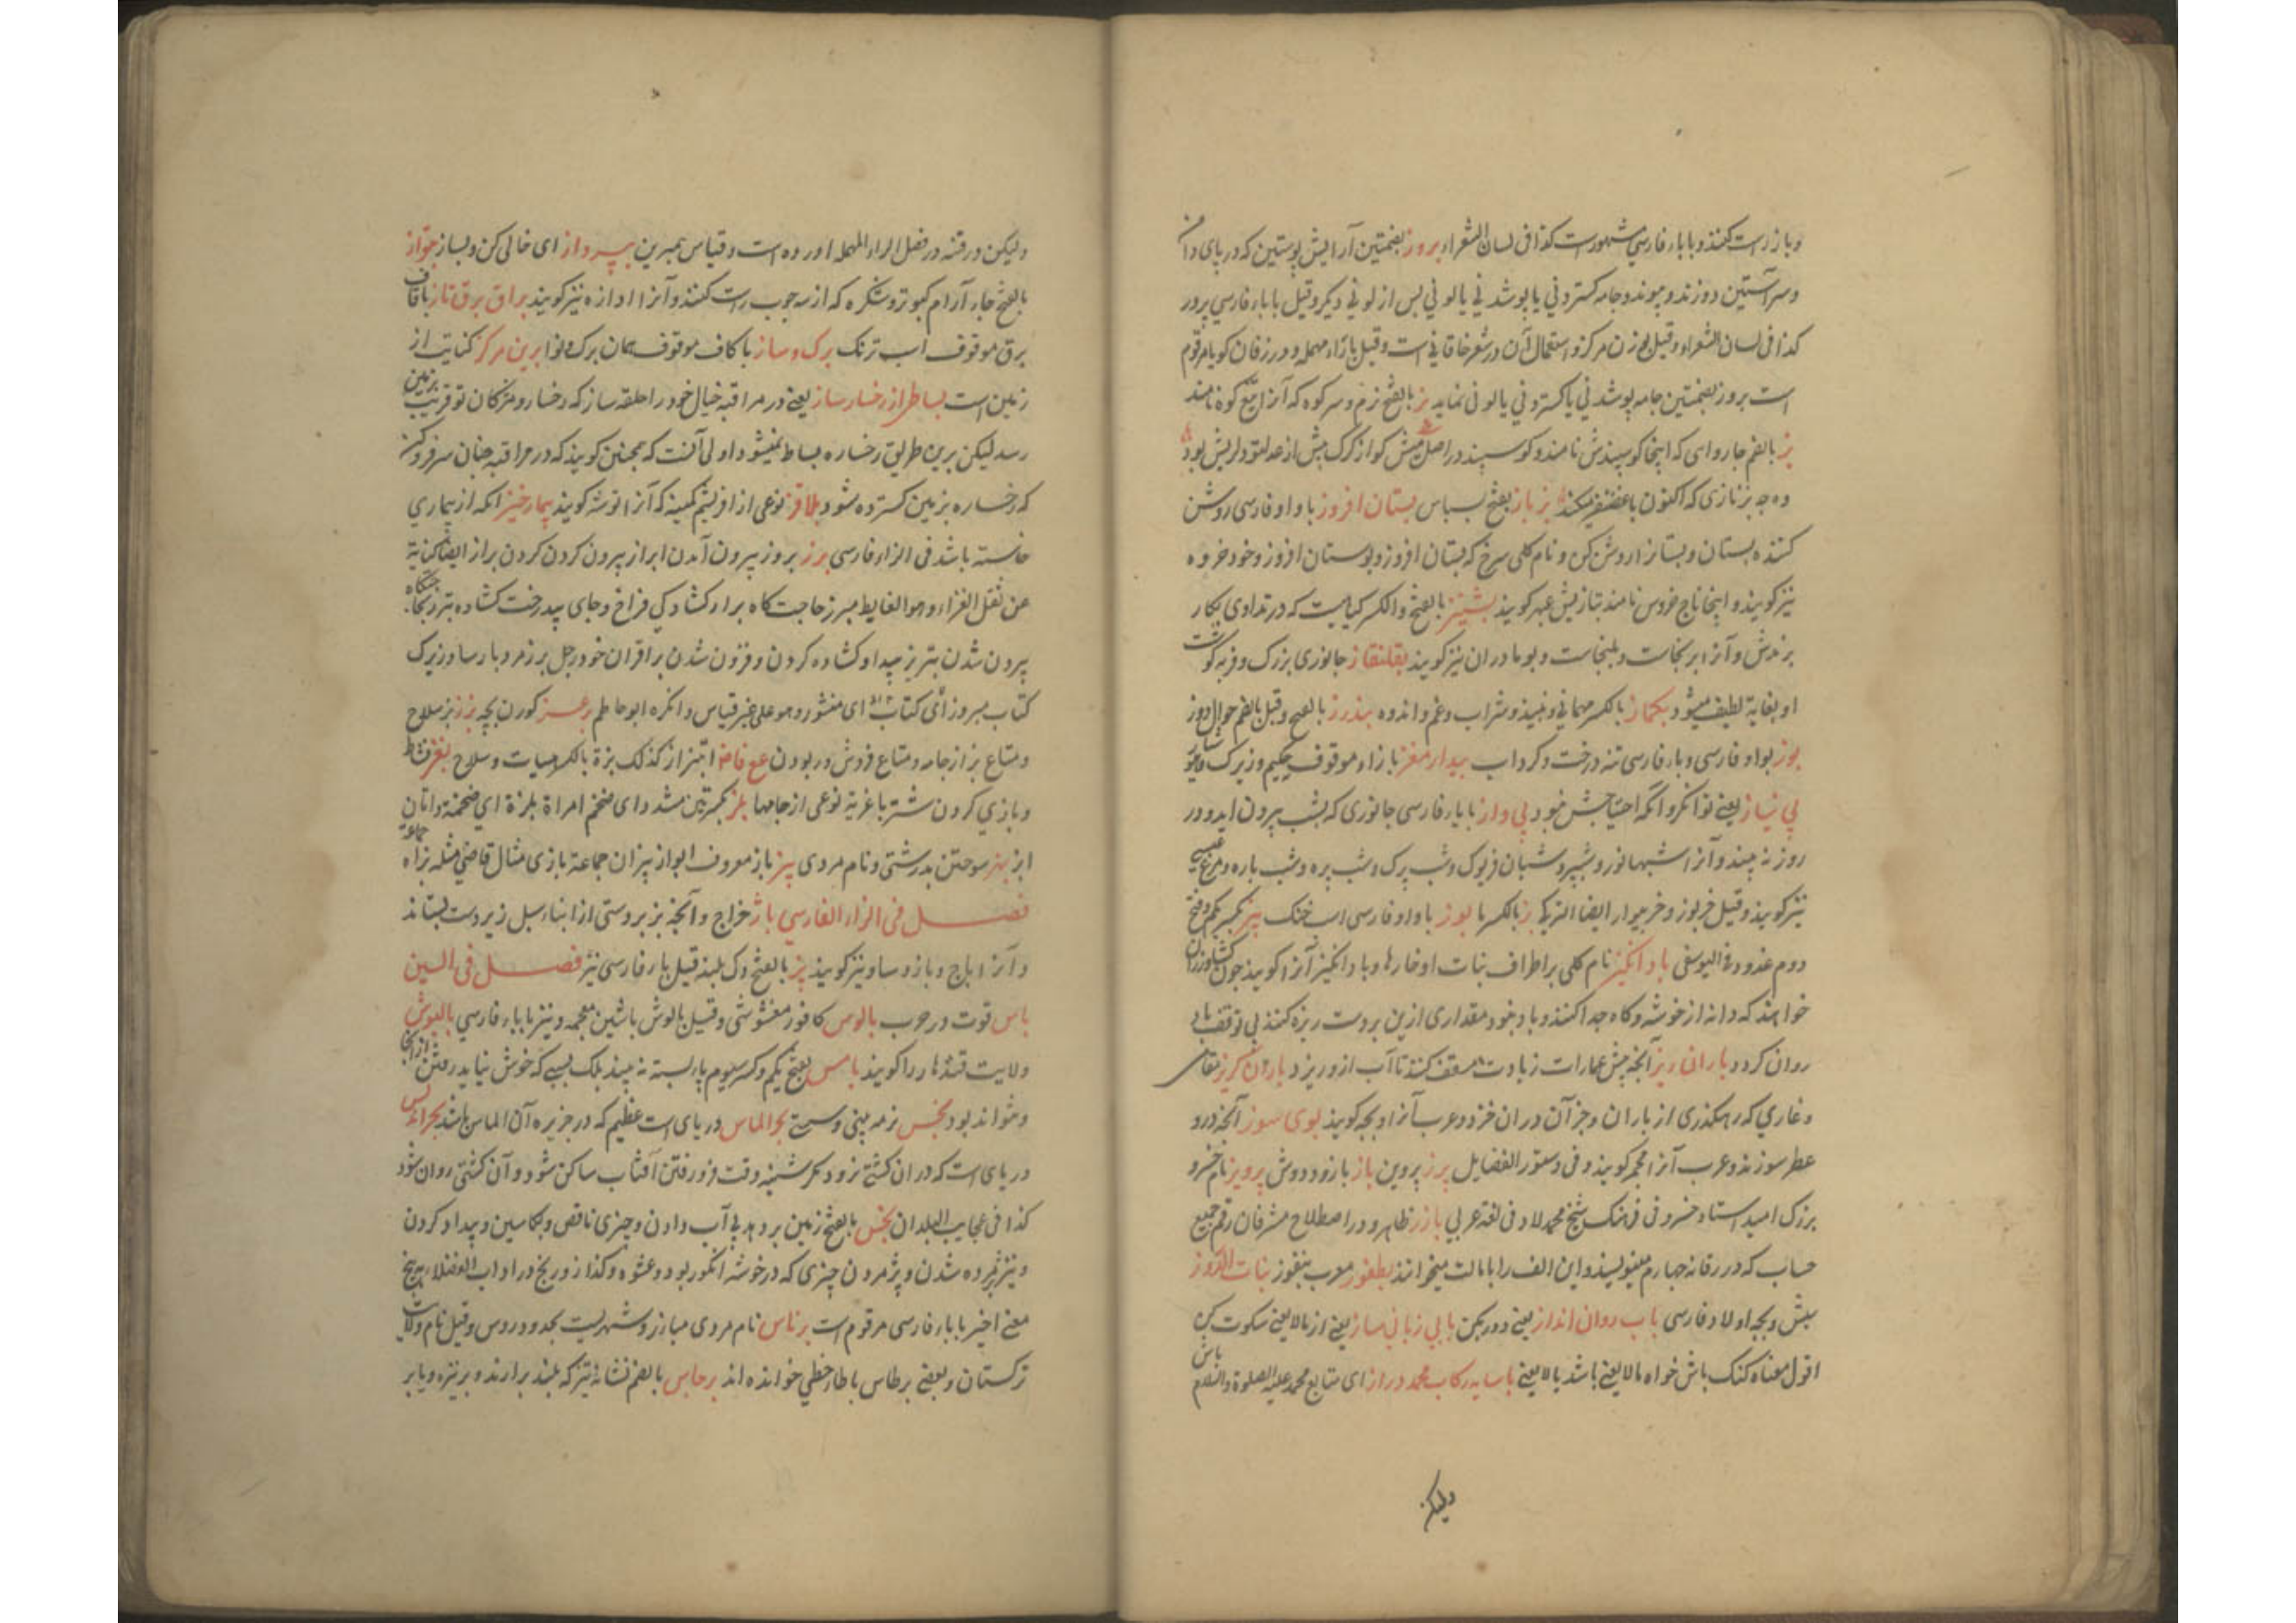 وبازراست کنند و باباء فارسی مشهورست کذا فی لسان الشعراء بروز بضمتین آرایش پوستین که در پای دامن
وسر آستین دوزند و پیوند و جامه کستردنی یا پوشدنی یا لونی بس از لونی دیکر و قیل با باء فارسی پرور
کذا فی لسان الشعراء و قیل بوزن مرکز و استعمال آن در شعر خاقانی است و قیل با راء مهمله و در زفان کویا مرقوم
است بروز بضمتین جامه پوشدنی یا کستردنی یا لونی نماید بز بالفتح زم و سر کوه که آنرا تیغ کوه نامند
بز بالضم جاروای که اینجا کوسپندش نامند و کوسپند در اصل میش کو از کرک بیش از صد امتو دلریش بود
ده چه بز نازی که اکنون با غضنفر میکند بز باز بفتح بسباس بستان افروز با واو فارسی روشن
کننده بستان و بستانرا روشن کن و نام کلی سرخ که بستان افروز و بوستان افروز و خود خروه
نیز کویند و اینجا تاج خروس نامند بتازیش عبهر کویند بشتیز بالفتح والکسر کیاهیست که در تداوی بکار
برندش و آنرا برنجاست و بلنجاست و بوماداران نیز کویند بقلنقاز جانوری بزرک و فربه کوشت
او بغایة لطیف میشود بکماز بالکسر مهمانی و نبیذ و شراب و غم و اندوه بندرز بالفتح و قیل بالضم جوال دوز
بوز بواو فارسی و باء فارسی تنه درخت و کرداب بیدار مغز با زاء موقوف حکیم و زیرک و هشیار
بی نیاز یعنی توانکر و آنکه احتیاجش نبود بی واز با یاء فارسی جانوری که بشب بیرون اید و در
روز نه بیند و آنرا شبهانور و شبپر و شبان فریوک و شب پرک و شب پره و شب باره و مرغ عیسی
نیز کویند و قیل خربوز و خربیواز ایضا بالکسر با بوز با واو فارسی اسب خنک بیز بکسر یکم و فتح
دوم عذود فی الیوسفی باد انکیز نام کلی بر اطراف نبات او خارها و باد انکیز آنرا کویند چون کشاورزان
خواهند که دانه از خوشه و کاه جدا کنند و باد نبود مقداری ازین بر دست ریزه کنند بی توقف باد
روان کردد باران ریز آنچه پیش عمارات زیادت مسقف کنند تا آب ازو ریزد باران کریز مقامی
و غاری که رهکذری از باران و جز آن در ان خزد و عرب آنرا وبجه کویند بوی سوز آنچه درو
عطر سوزند و عرب آنرا مجمر کویند و فی دستور الفضایل برز پروین باز بازو و دوش پرویز نام خسرو
بزرک امید استاد خسرو فی فرهنک شیخ محمد لاد فی لغة عربی بارز ظاهر و در اصطلاح مشرفان رقم جمیع
حساب که در رقانه چهارم مینویسند و این الف را باباالت میخوانند بطغور معرب بتفوز بنات الدروز
سپش و بچه اولاد فارسی باب روان انداز یعنی دور بکن با بی زبانی ساز یعنی از مالایعنی سکوت کن
اقول معناه کنک باش خواه مالایعنی باشد یا لایعنی باش با سایه رکاب محمد دراز ای متابع محمد علیه الصلوة والسلام
ولیکن
ولیکن ورقنه در فصل الراء المهمله اورده است و قیاس همبرین بپرداز ای خالی کن و بساز بتواز
بالفتح جاء آرام کبوتر و شکره که از سه چوب راست کنند و آنرا اداره نیز کویند براق برق تاز با قاف
برق موقوف اسب تزنک برک و ساز با کاف موقوف همان برک و نوا برین مرکز کنایت از
زمین است بساط از رخسار ساز یعنی در مراقبه خیال خود را حلقه ساز که رخسار و مژکان تو قریب بزمین
رسد لیکن برین طریق رخساره بساط نمیشود اولی آنست که همچنین کویند که در مراقبه چنان سر فرو کن
که رخساره بزمین کسترده شود بلاقز نوعی از افریشم کمینه که آنرا نوشه کویند بیمار خیز آنکه از بیماری
خاسته باشد فی الزاء فارسی برز بروز بیرون آمدن ابراز بیرون کردن کردن براز ایضا کنایة
عن ثقل الغذاء و هو الغایط مبرز حاجتکاه براز کشادکی فراخ و جای بیدرخت کشاده تبرز بجا جنکاه
بیرون شدن تبریز پیدا و کشاده کردن و فزون شدن بر اقران خود رجل برز مرد پارسا و زیرک
کتاب مبروز ای کتاب ای منشور و هو علی غیر قیاس و انکره ابو حاطم برغز کوزن بچه بزز بز سلاح
ومتاع بز از جامه و متاع فروش و ربودن مع فاضه ابتزاز کذلک بزة بالکسر هیات و سلاح بغز نشاط
و بازی کردن شتر باغزیه نوعی از جامها بلز بکسرتین مشدد ای ضخم امراة بلزة ای ضخمة و اتان
ابز بهز سوختن بدرشتی و نام مردی بیز باز معروف ابواز بیزان جماعة بازی مثال قاضی مثله بزاه جماعة
فصل فی الزاء الفارسی باژ خراج و آنچه بزبردستی از ابناء سبیل زیردست بستاند
و آنرا باج و باز و ساو نیز کویند بژ بالفتح وک بلند قیل باء فارسی نیز فصل فی السین
باس قوت و در عرب بالوس کافور مغشوشی و قیل بالوش باشین معجمه و نیز با باء فارسی بالیوس
ولایت قندهار را کویند بامس بفتح یکم و کسر سیوم پا بسته نه ببند بلک بسببی که خوش نیاید رفتن از آنجا
ونتواند بود بخس نرمه بینی و سستی بحر الماس دریای است عظیم که در جزیره آن الماس باشد بحر اندلس
دریای است که در ان کشتی نرود مکر شنبه وقت فرو رفتن آفتاب ساکن شود و آن کشتی روان شود
کذا فی عجایب البلدان بخس بالفتح زمین بر دهد بی آب دادن و چیزی ناقص و بکاسین و بیداد کردن
ونیز پژمرده شدن و پژمردن چیزی که در خوشه انکور بود و عشوه و کداز و رنج در اداب الفضلا بهیچ
معنی اخیر با باء فارسی مرقوم است برناس نام مردی مبارز و شهریست بحدود روس و قیل نام ولایت
ترکستان و بعضی برطاس با طاء حطی خوانده اند برجاس بالضم نشانه تیر که بلند برارند و بر نیزه و یا بر